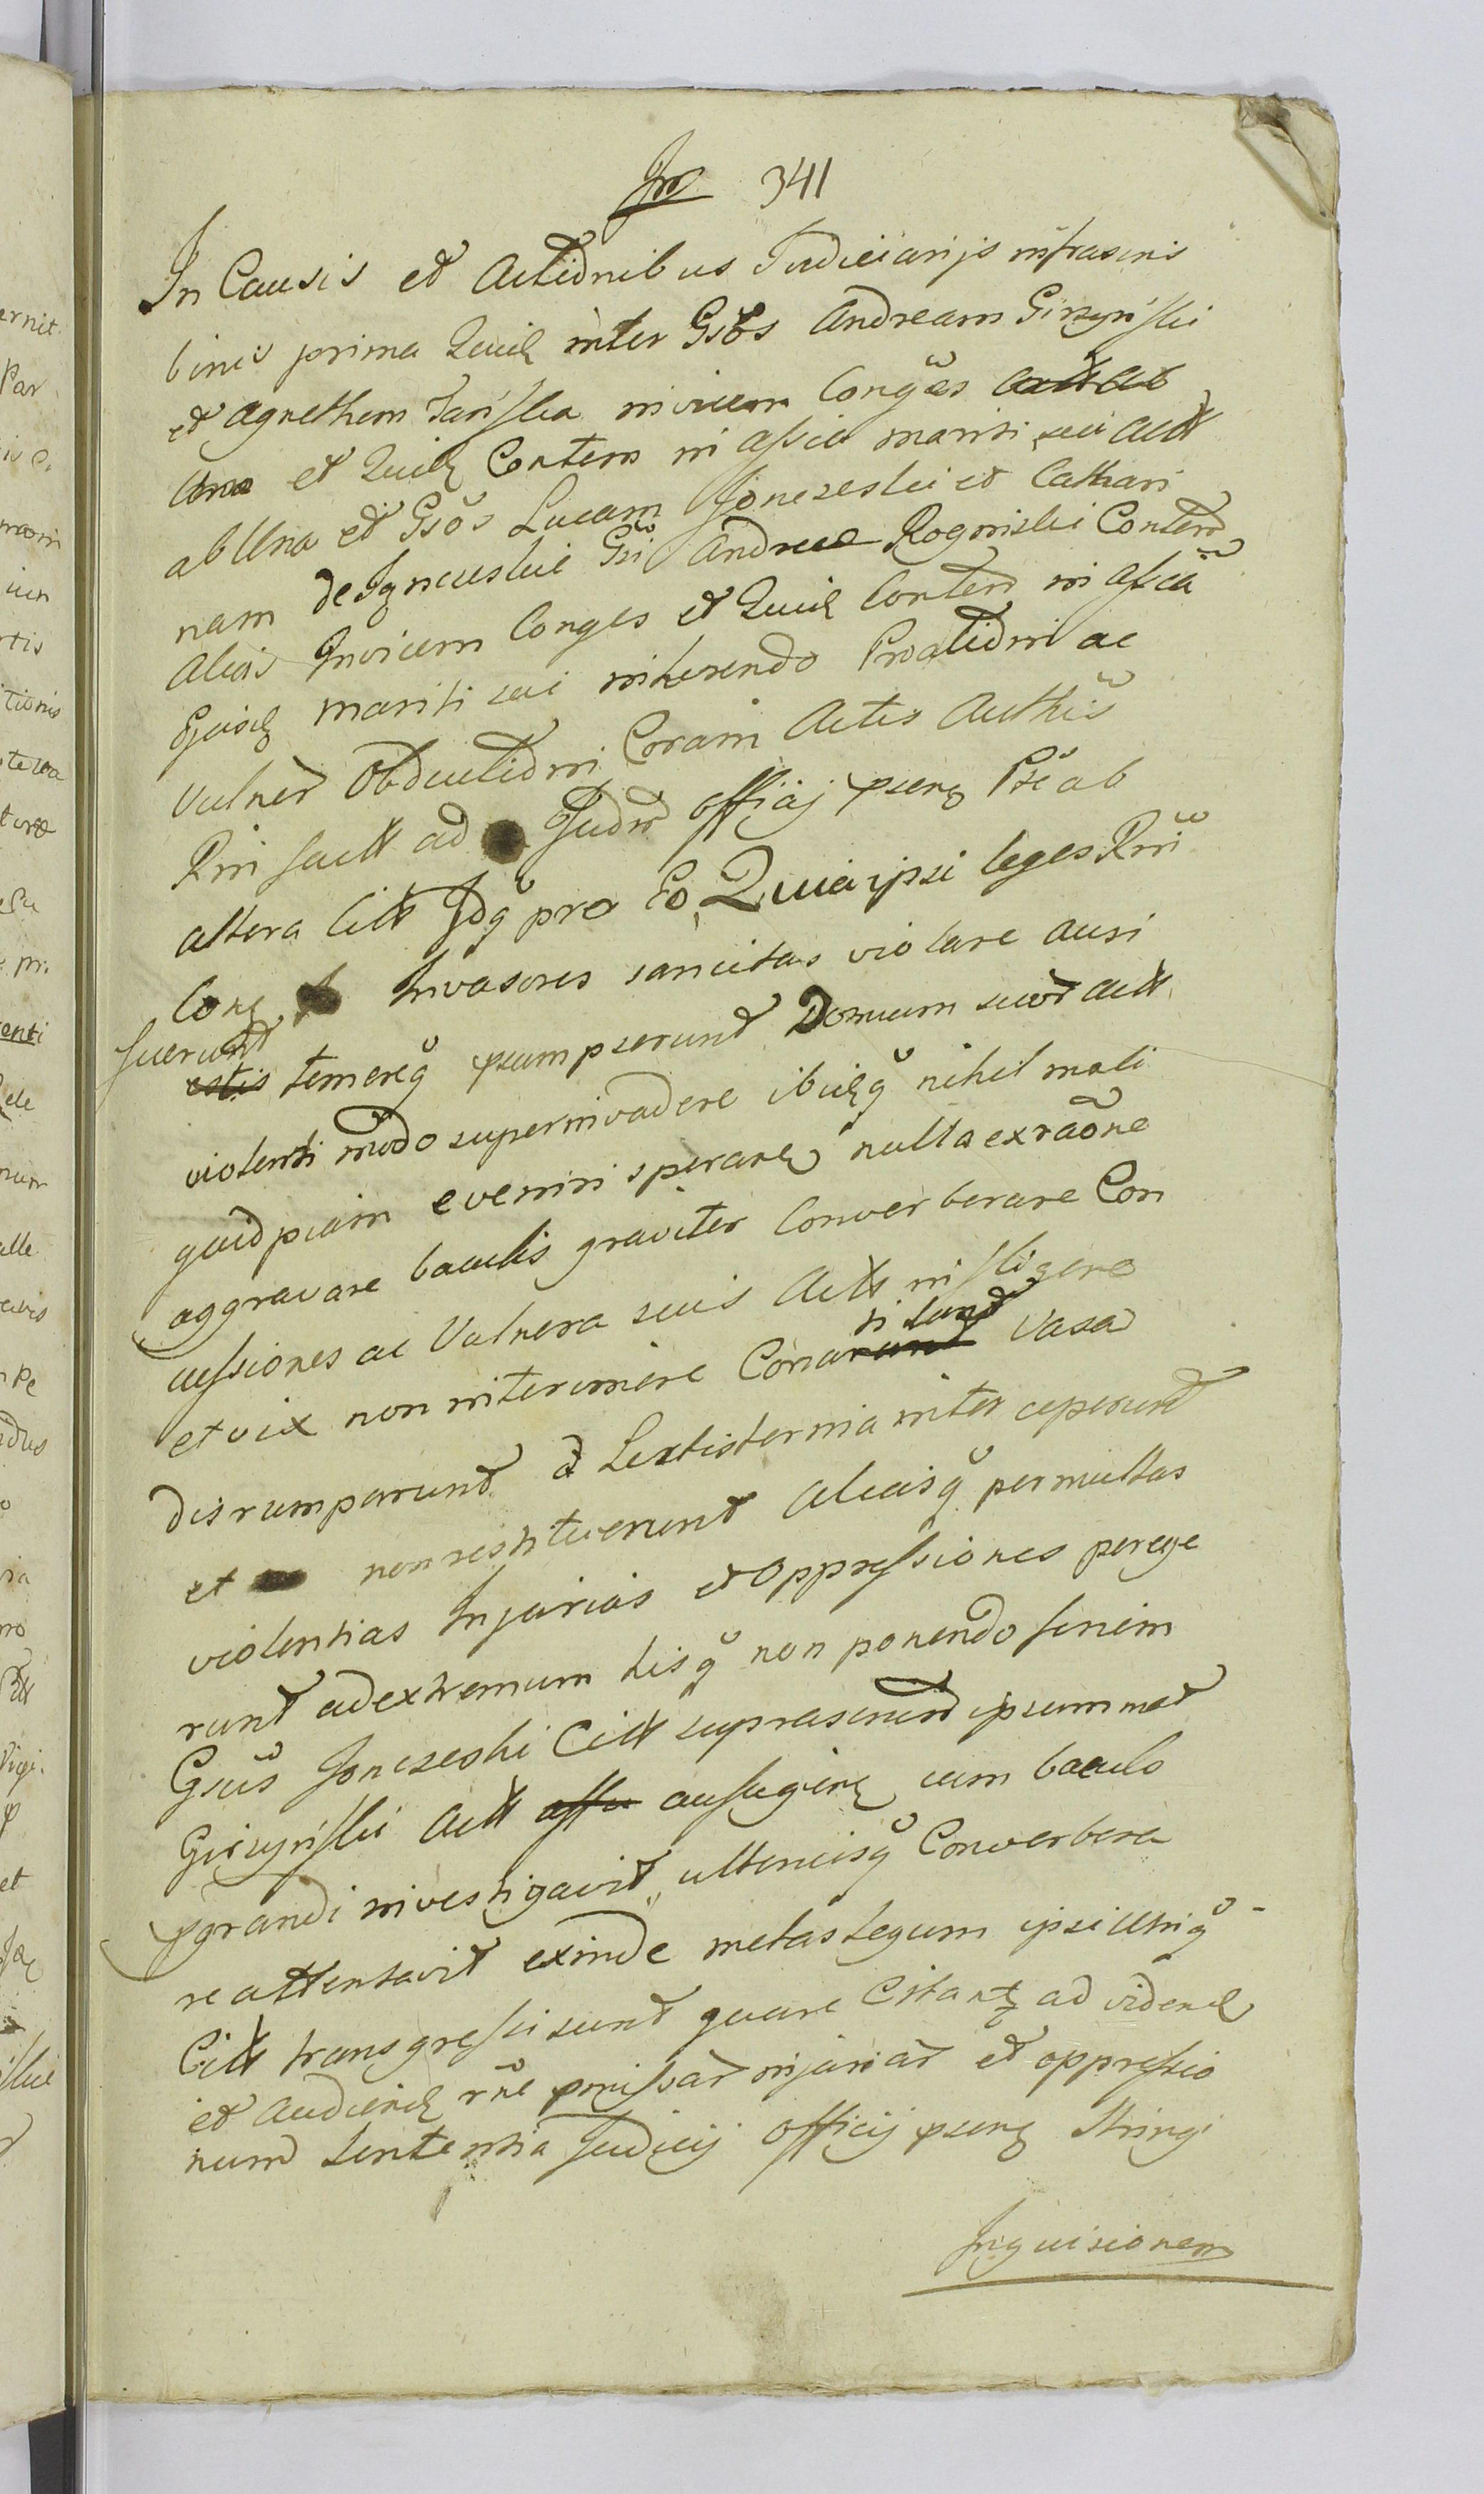 341
In Causis et Actionibus Judiciarijs infrascris
binis prima Quid inter Gsos Andream Girzynski
et Agnethem invicem Conges
Una et Quid Contem in assia mariti sui Actt
ab Una et Gsos Lucam Jonczeski et Cathari
nam de Gsi Andreae Rogoviski Contend
Alias Invicem Conges et Quid Contem in assia
Ejusd mariti sui inherendo Proatidni ac
Vulner Obductidni Coram Actis Authis
Rni factt ad Judm officij psens Psi ab
altera Citt Idq pro Eo Quia ipsi leges Rni
Con Invasores sancitas violare ausi
fuerunt
temereq psumpserunt Domum suor Actt
violenti modo superinvadere ibidq nihil mali
quidpiam evenini sperare nulla ex raone
aggravare baculis graviter Converberare Con
cussiones ac Vulnera suis Actt infligere
et vix non interimere Conati sunt Vasa
disrumparunt & Lectisternia inter ceperunt
et non restituerunt aliasq permultas
violentias Injurias et Oppressiones perege
runt ad extremum hisq non ponendo finem
Gsus Jonczeski Citt suprascriard ipsummet
Girzynski Actt aufugien cum baculo
pgrandi investigavit, ulteriusq Converbera
re attentavit exinde metas legum ipsi Uniq
Citt transgressi sunt quare Citantz ad vidend
et Audiend rne pmissar injuriar et oppressio
num Sententia Judicij officij psens Stringi
Inquisionem